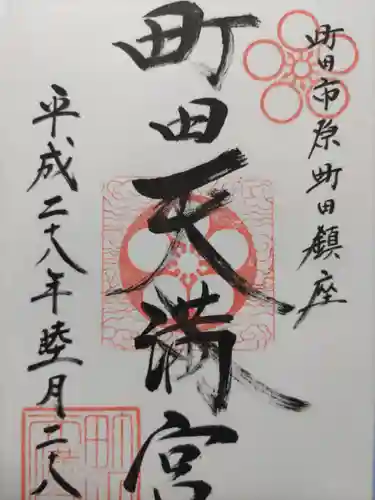 町田市原町田鎮座
町田天満宮
平成二十八年睦月二八